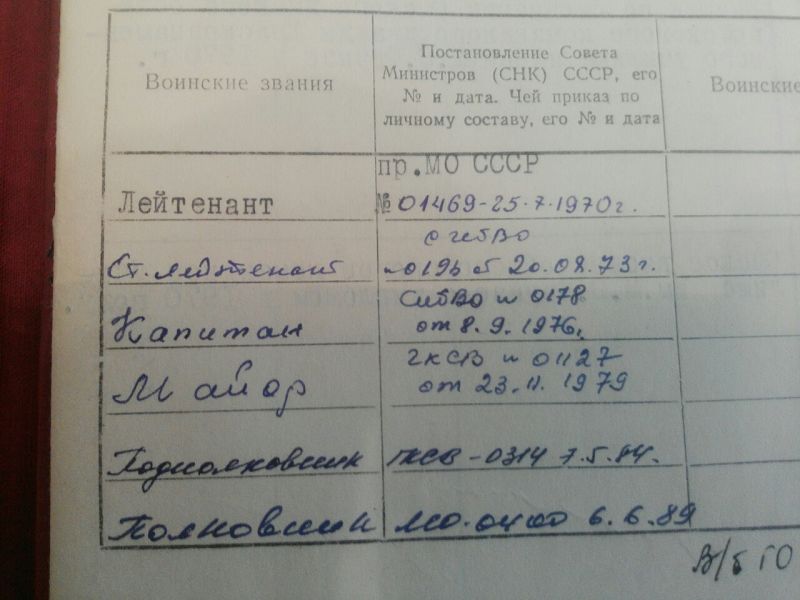 Воинские звания
Постановление Совета
Министров (СНК) СССР, его
№ и дата. Чей приказ по
личному составу, его № и дата
Воинские
пр.МО СССР
Лейтенант
№ 01469-25.7.1970г.
Ст. лейтенант
20.08.73г.
Капитан
СибВО № 0178
от 8.9.1976г.
Майор
ГКСВ № 01127
от 23.11.1979
Подполковник
ГКСВ-0314 7.5.84.
Полковник
МО. 6.6.89